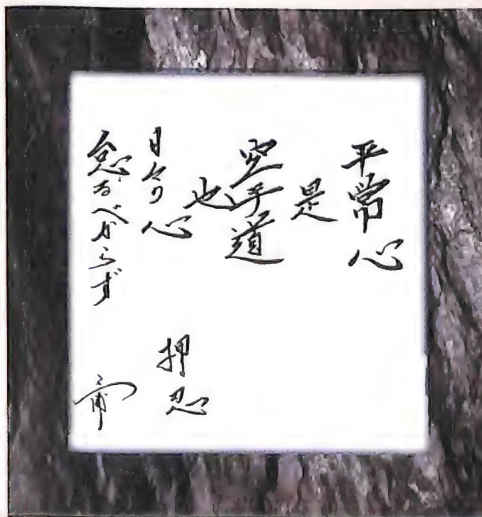 平常心
是
空手道
也
日々の心
怠るべからず
押忍